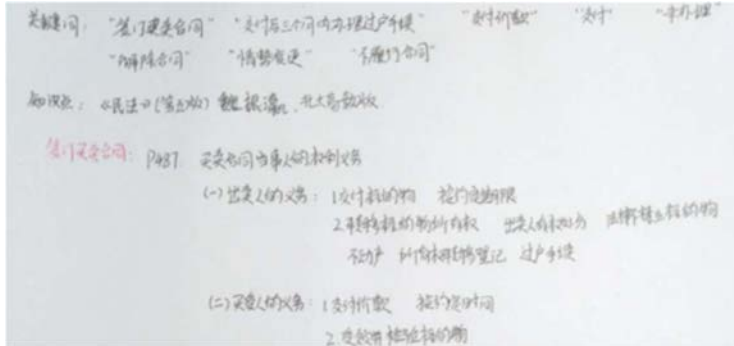 关键词：“签订买卖合同” “交付后三个月内办理过户手续” “支付价款” “交付” “未办理”
“解除合同” “情势变更” “不履行合同”
知识点：《民法》(第五版) 魏振瀛，北大高教版
签订买卖合同：P487 买卖合同当事人的权利义务
(一)出卖人的义务：1.交付标的物 按约定期限
2.转移标的物所有权 出卖人有权处分 法律禁止标的物
不动产 所有权转移登记 过户手续
(二)买受人的义务：1.支付价款 按约定时间
2.受领并检验标的物